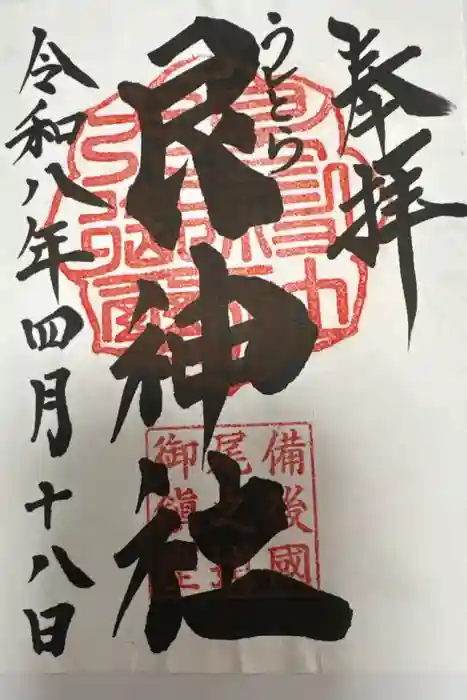 奉拝
うしとら
艮神社
令和八年四月十八日
備後國
尾之道
御鎮座